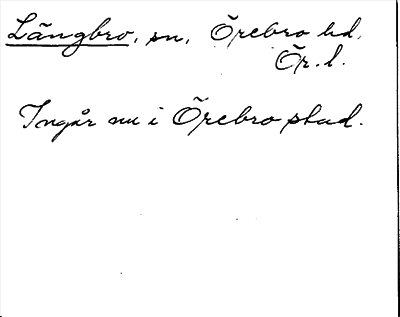 Längbro, sn, Örebro hd,
Ör. l.
Ingår nu i Örebro stad.